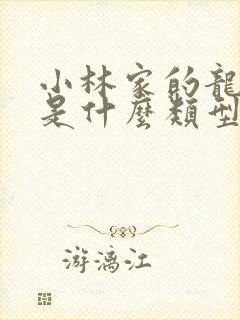 小林家的龍
是什麼類型
游漓江